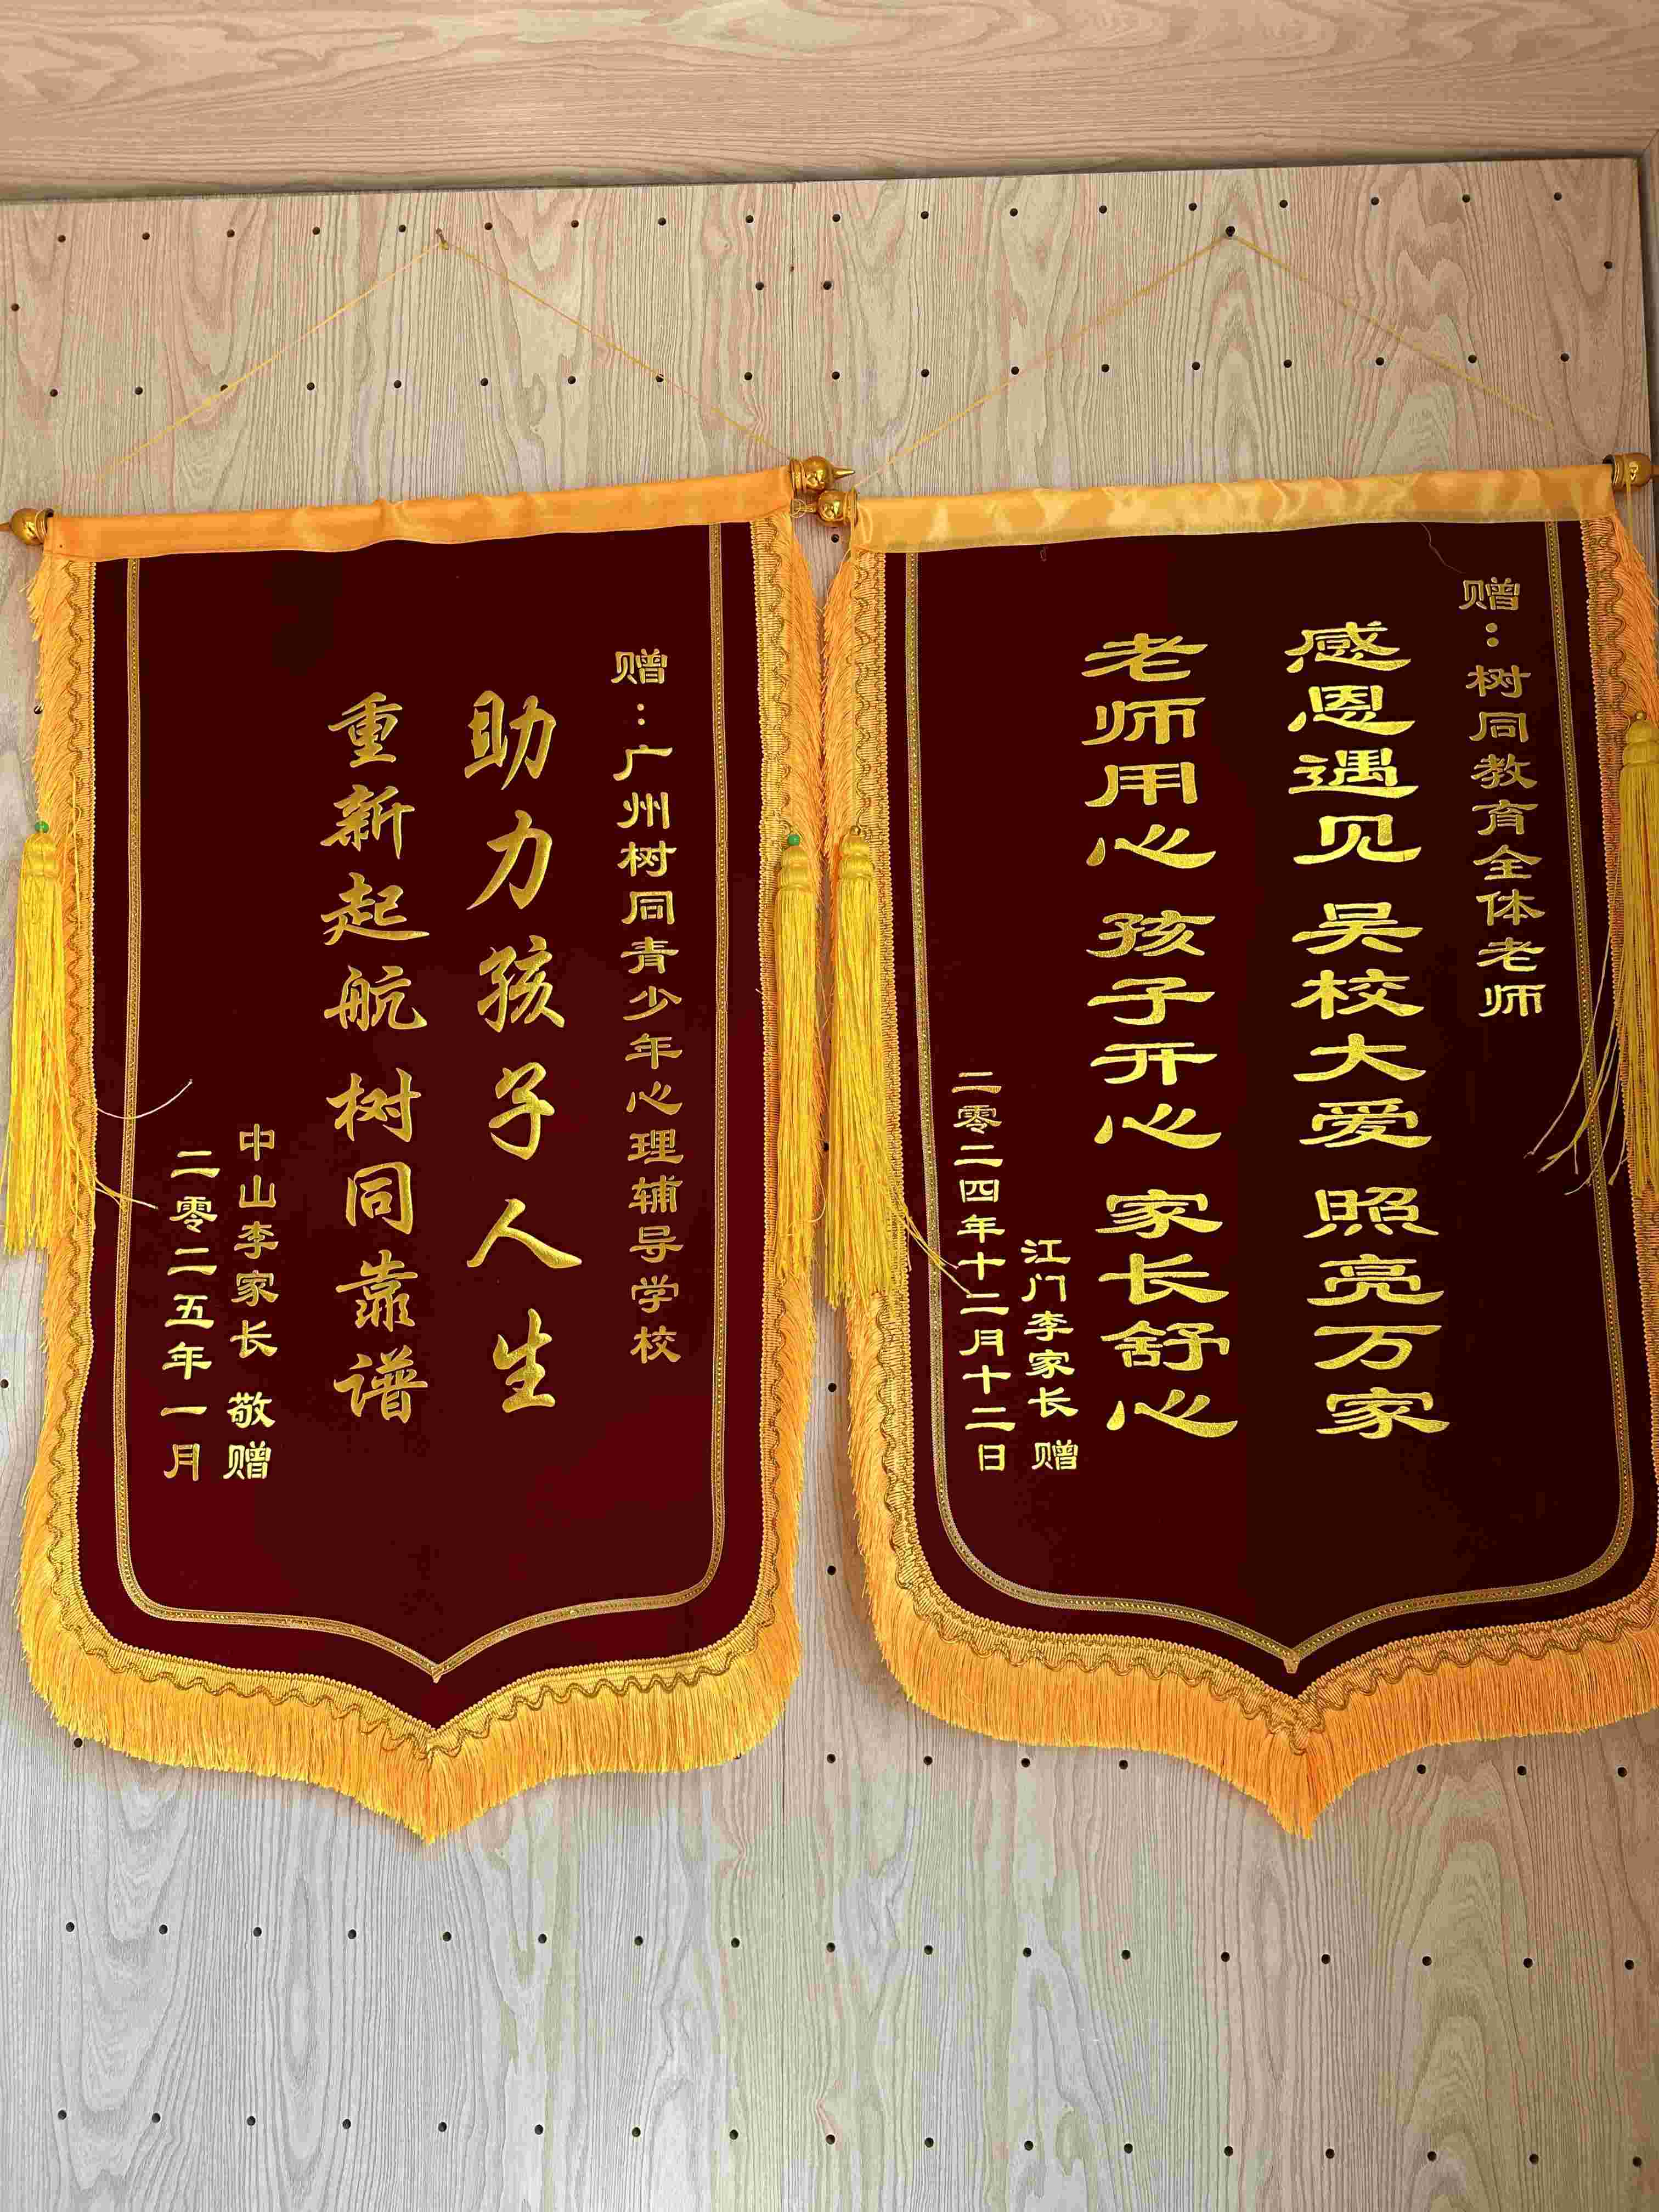 赠：广州树同青少年心理辅导学校
助力孩子人生
重新起航 树同靠谱
中山李家长 敬赠
二零二五年一月
赠：树同教育全体老师
感恩遇见 吴校大爱 照亮万家
老师用心 孩子开心 家长舒心
江门李家长 赠
二零二四年十二月十二日